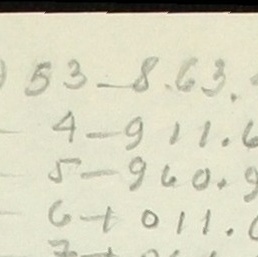 ) 53-8.63.
- 4-911.6
- 5-960.9
- 6+011.0
7+